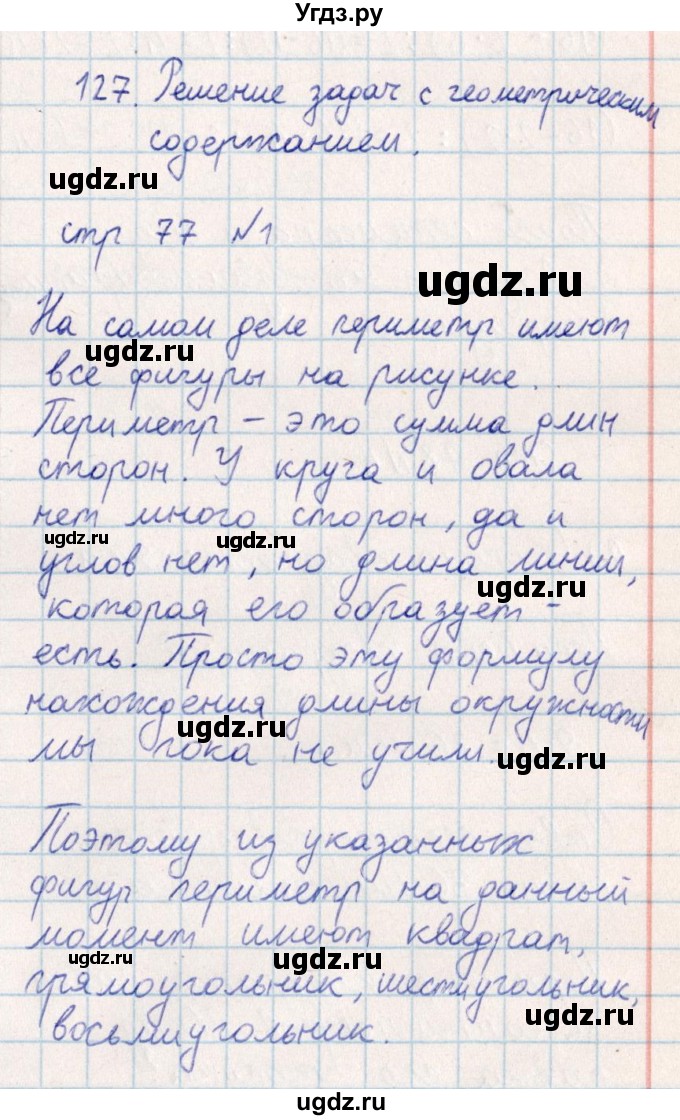 Угдз.ру
127. Решение задач с геометрическим
содержанием.
ugdz.ru
стр 77 №1
ugdz.ru
На самом деле периметр имеют
ugdz.ru
все фигуры на рисунке.
Периметр – это сумма длин
сторон. У круга и овала
нет много сторон, да и
ugdz.ru ugdz.ru
углов нет, но длина линии,
ugdz.ru
которая его образует –
есть. Просто эту формулу
нахождения длины окружности
ugdz.ru
мы пока не учили.
ugdz.ru
Поэтому из указанных
фигур периметр на данный
момент имеют квадрат,
ugdz.ru ugdz.ru
прямоугольник, шестиугольник,
ugdz.ru
восьмиугольник.
ugdz.ru